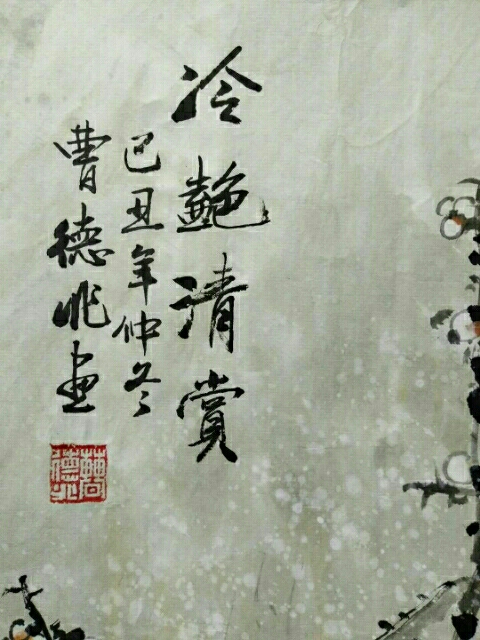 冷艷清賞
己丑年仲冬
曹德兆畫
曹德兆